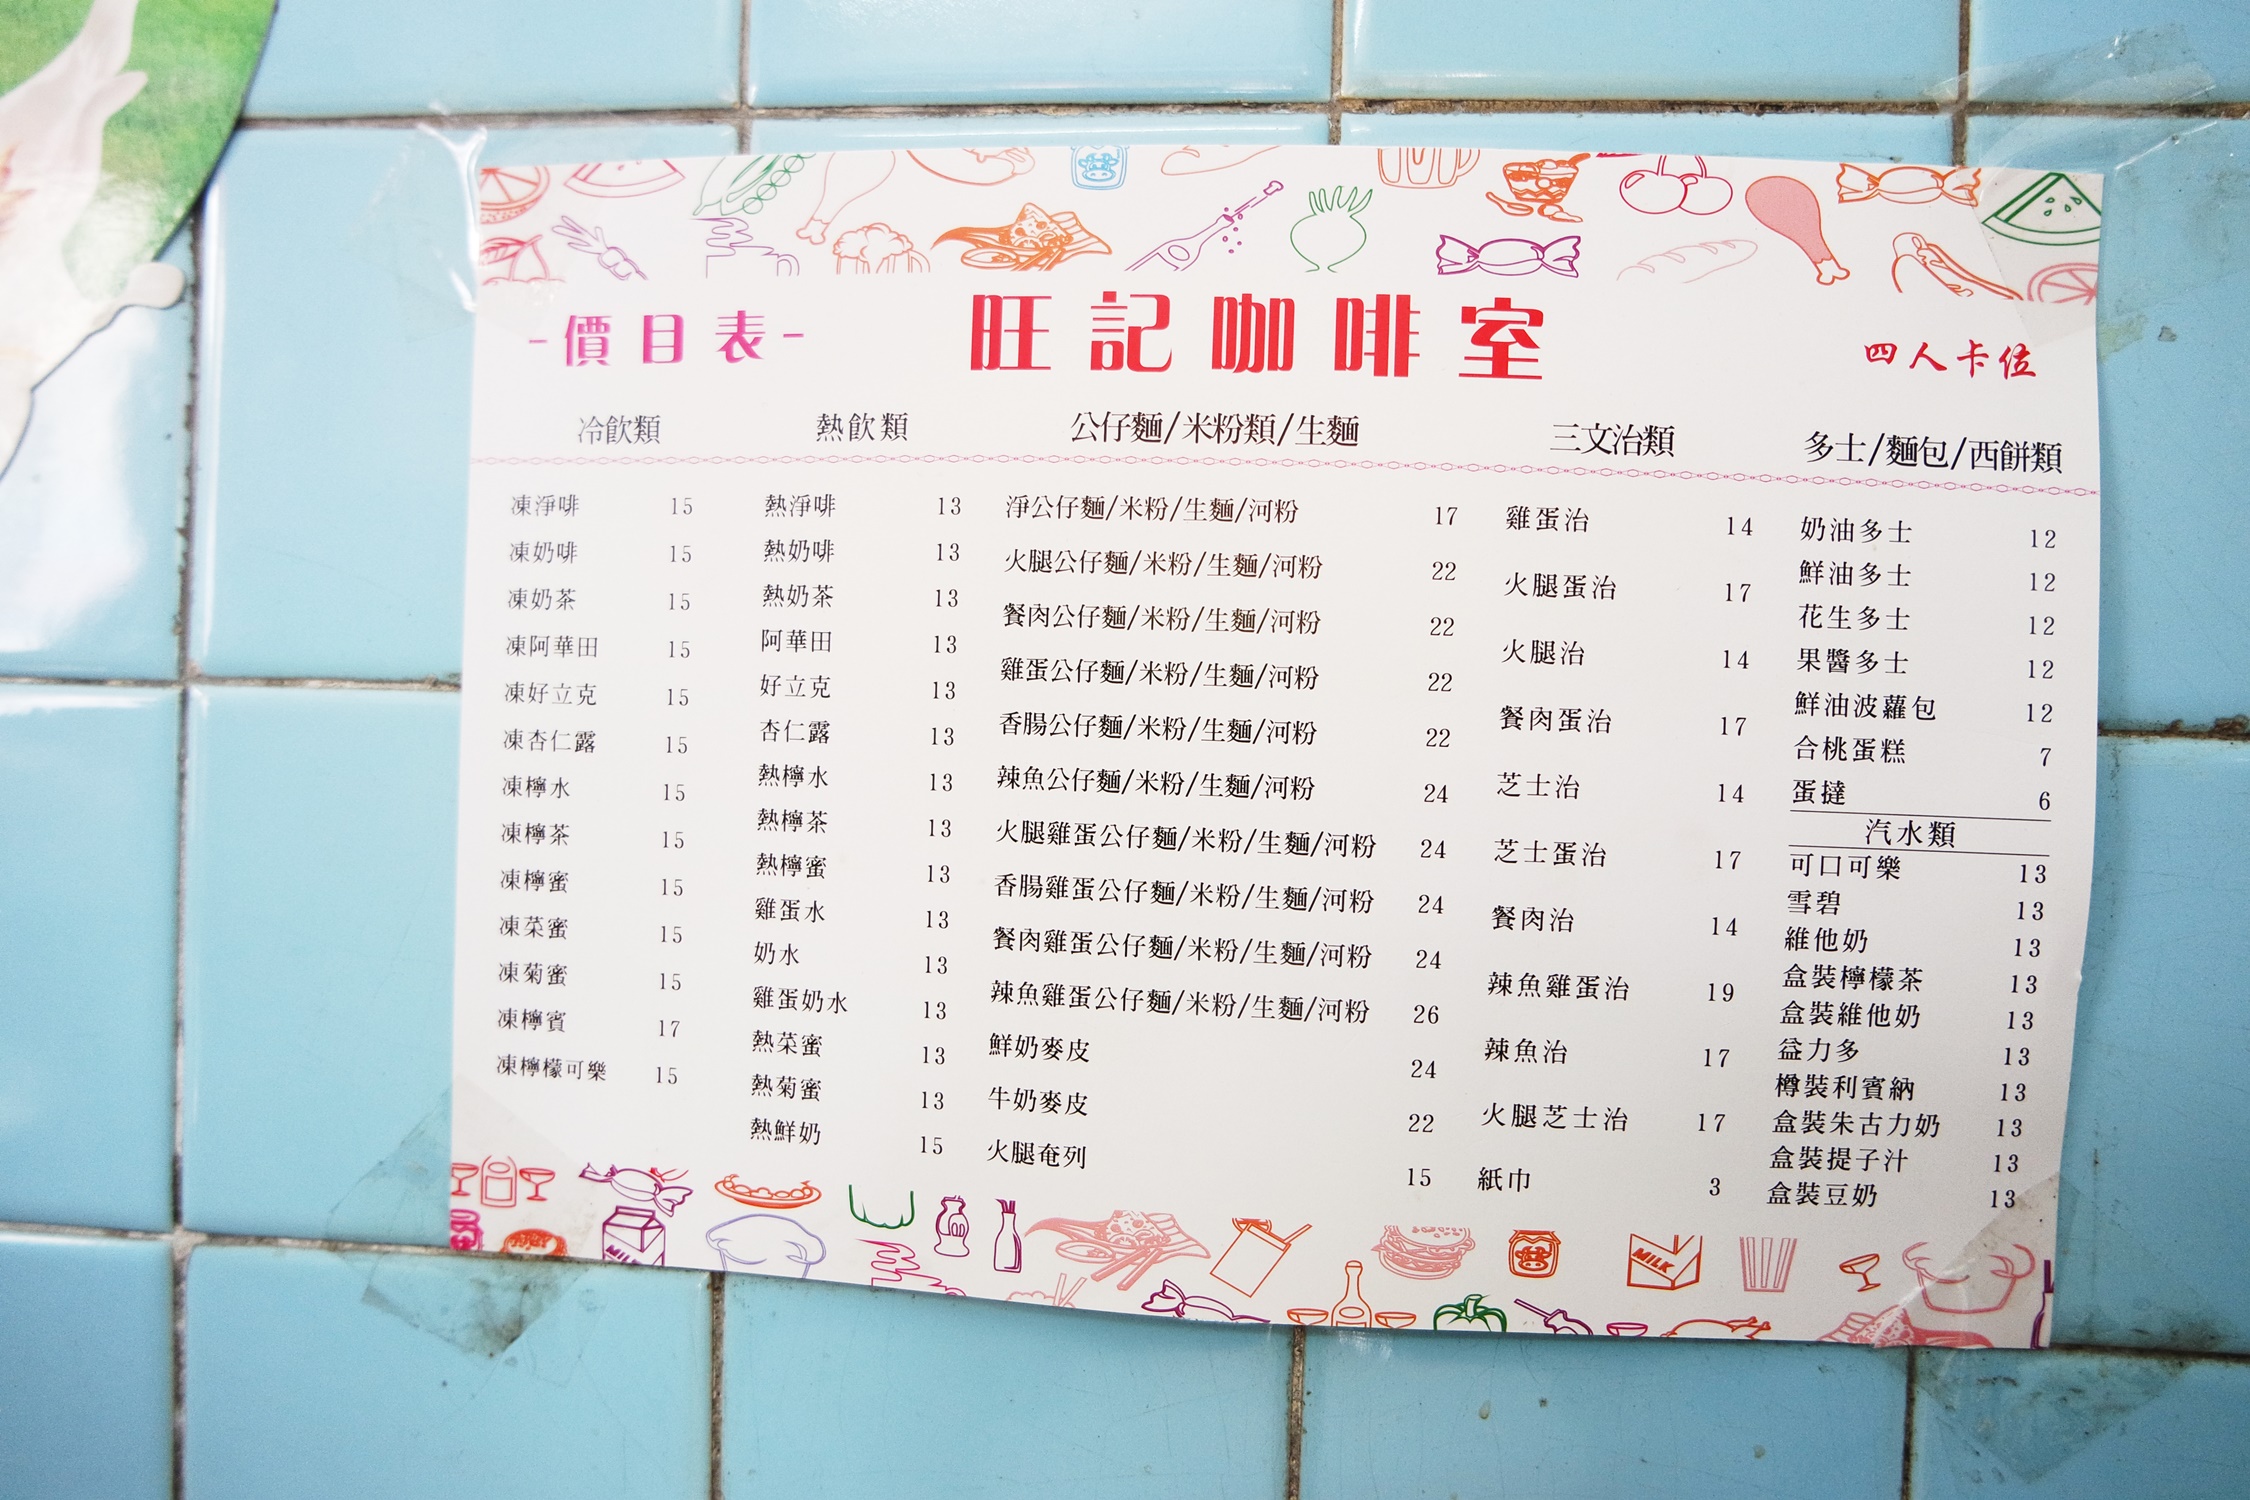 -價目表-
旺記咖啡室
四人卡位
冷飲類
凍淨啡 15
凍奶啡 15
凍奶茶 15
凍阿華田 15
凍好立克 15
凍杏仁露 15
凍檸水 15
凍檸茶 15
凍檸蜜 15
凍菜蜜 15
凍菊蜜 15
凍檸賓 17
凍檸檬可樂 15
熱飲類
熱淨啡 13
熱奶啡 13
熱奶茶 13
阿華田 13
好立克 13
杏仁露 13
熱檸水 13
熱檸茶 13
熱檸蜜 13
雞蛋水 13
奶水 13
雞蛋奶水 13
熱菜蜜 13
熱菊蜜 13
熱鮮奶 15
公仔麵/米粉類/生麵
淨公仔麵/米粉/生麵/河粉 17
火腿公仔麵/米粉/生麵/河粉 22
餐肉公仔麵/米粉/生麵/河粉 22
雞蛋公仔麵/米粉/生麵/河粉 22
香腸公仔麵/米粉/生麵/河粉 22
辣魚公仔麵/米粉/生麵/河粉 24
火腿雞蛋公仔麵/米粉/生麵/河粉 24
香腸雞蛋公仔麵/米粉/生麵/河粉 24
餐肉雞蛋公仔麵/米粉/生麵/河粉 24
辣魚雞蛋公仔麵/米粉/生麵/河粉 26
鮮奶麥皮 24
牛奶麥皮 22
火腿奄列 15
三文治類
雞蛋治 14
火腿蛋治 17
火腿治 14
餐肉蛋治 17
芝士治 14
芝士蛋治 17
餐肉治 14
辣魚雞蛋治 19
辣魚治 17
火腿芝士治 17
紙巾 3
多士/麵包/西餅類
奶油多士 12
鮮油多士 12
花生多士 12
果醬多士 12
鮮油波蘿包 12
合桃蛋糕 7
蛋撻 6
汽水類
可口可樂 13
雪碧 13
維他奶 13
盒裝檸檬茶 13
盒裝維他奶 13
益力多 13
樽裝利賓納 13
盒裝朱古力奶 13
盒裝提子汁 13
盒裝豆奶 13
MILK
MILK